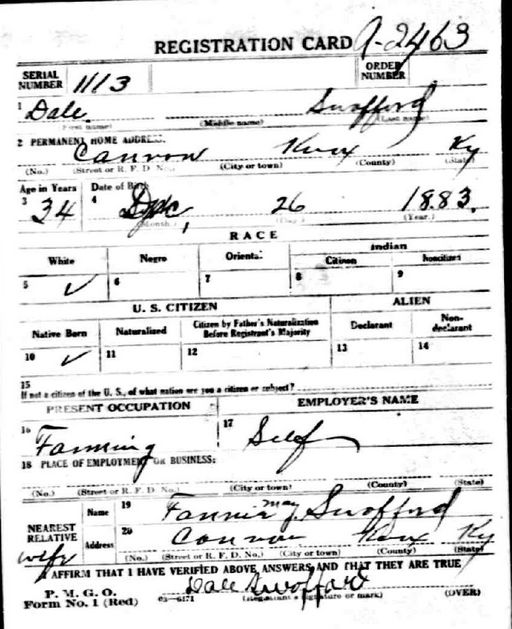 REGISTRATION CARD A-2463
SERIAL NUMBER 1113 ORDER NUMBER
1 Dale Swofford
(First name) (Middle name) (Last name)
2 PERMANENT HOME ADDRESS:
Cannon Knox Ky
(No.) (Street or R. F. D. No.) (City or town) (County) (State)
Age in Years Date of Birth
3 34 4 26 1883.
(Month.) (Day.) (Year.)
RACE
White Negro Oriental Indian
Citizen Noncitizen
5 ✓ 6 7 8 9
U. S. CITIZEN ALIEN
Native Born Naturalized Citizen by Father's Naturalization Before Registrant's Majority Declarant Non-declarant
10 ✓ 11 12 13 14
15
If not a citizen of the U. S., of what nation are you a citizen or subject?
PRESENT OCCUPATION EMPLOYER'S NAME
16 Farming 17 Self
18 PLACE OF EMPLOYMENT OR BUSINESS:
(No.) (Street or R. F. D. No.) (City or town) (County) (State)
NEAREST RELATIVE Name 19 Fannie May Swofford
wife Address 20 Cannon Knox Ky
(No.) (Street or R. F. D. No.) (City or town) (County) (State)
I AFFIRM THAT I HAVE VERIFIED ABOVE ANSWERS AND THAT THEY ARE TRUE
P. M. G. O. Dale Swofford
Form No. 1 (Red) 03—6171 (Registrant's signature or mark) (OVER)